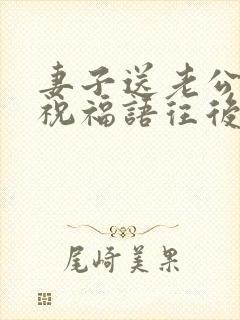 妻子送老公
祝福語往後
尾崎美果